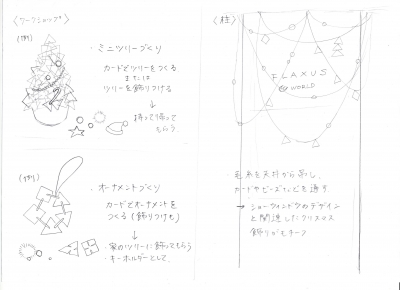 〈ワークショップ〉
(例)
・ミニツリーづくり
カードとツリーをつくる
または
ツリーを飾りつける
↓
持って帰って
もらう
(例)
・オーナメントづくり
カードとオーナメントを
つくる(飾りつけも)
↓
・家のツリーに飾ってもらう
・キーホルダーとして。
〈柱〉
FLAXUS
WORLD
・毛糸を天井から吊るし、
カードやビーズなどを通す。
→ ショーウィンドウのデザイン
と関連したクリスマス
飾りがモチーフ